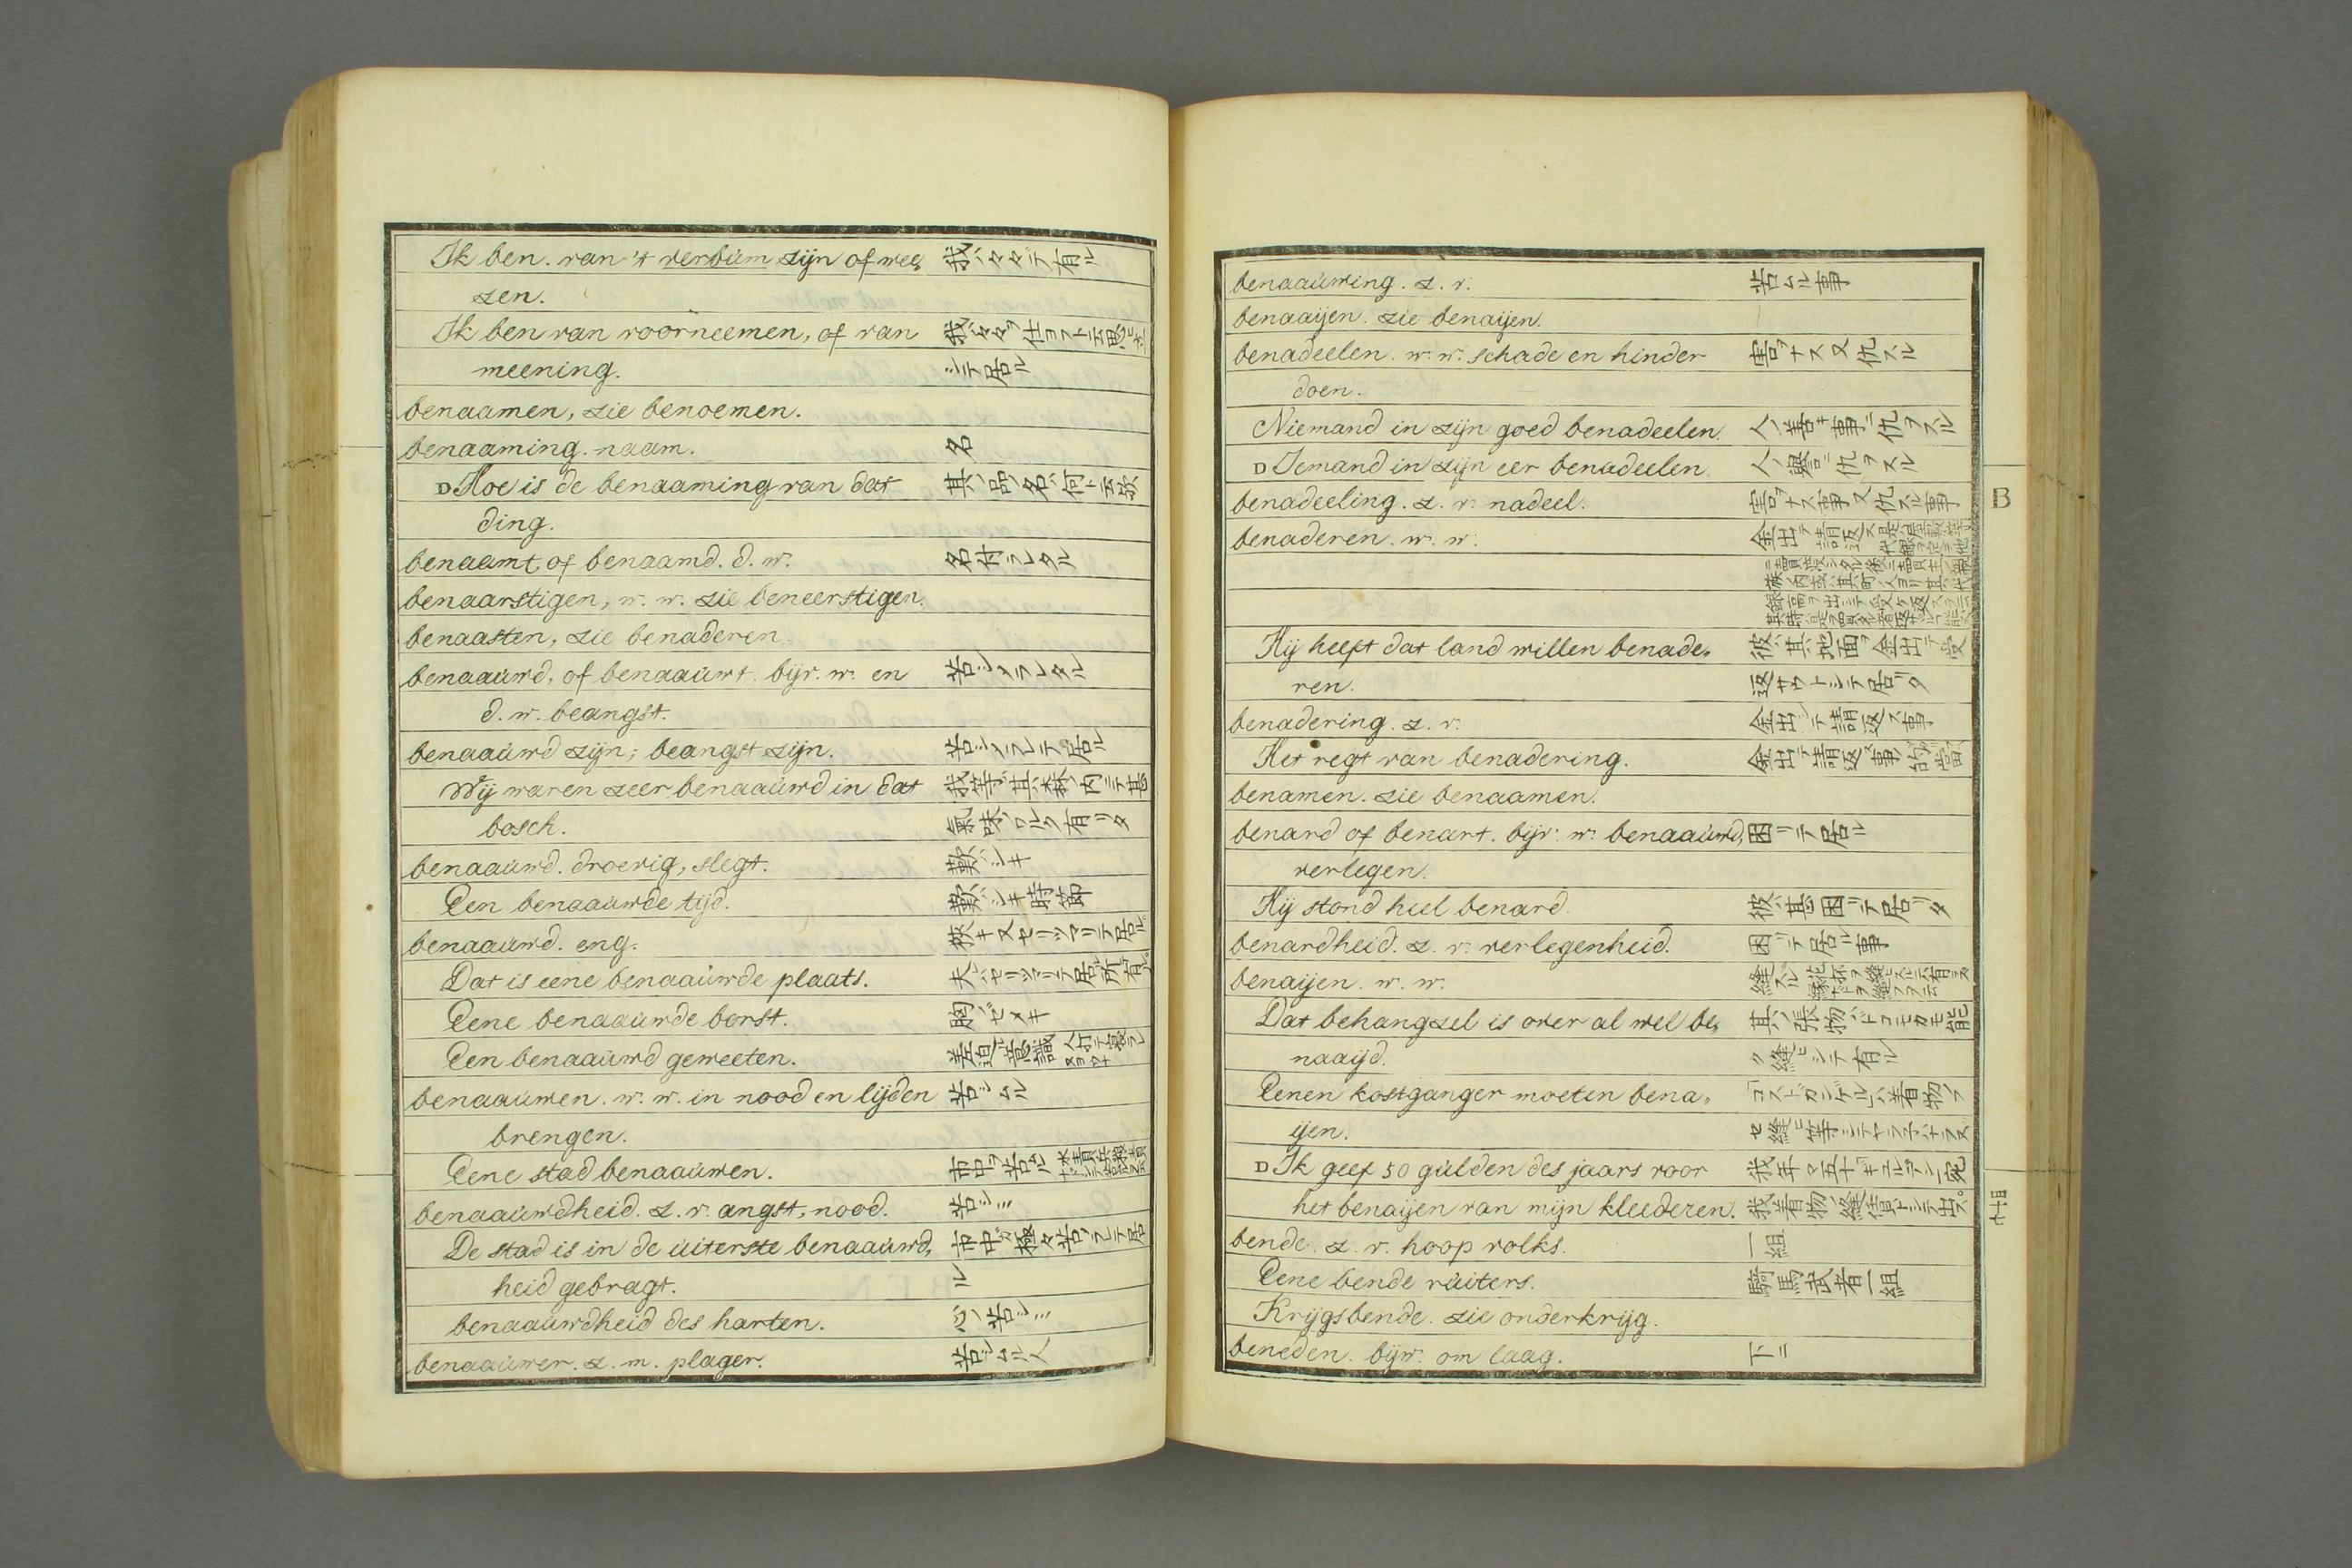 Ik ben. van 't verbúm zijn of wee, 我ハ々々テ有ル
zen.
Ik ben van voorneemen, of van 我ハ々々ヲ仕ヨフト云思ヒ
meening. シテ居ル
benaamen, zie benoemen.
benaaming. naam. 名
D Hoe is de benaaming van dat 其品ノ名ハ何ト云
ding.
benaamt, of benaamd. d. w. 名付ラレタル
benaarstigen, w. w. zie beneerstigen.
benaasten, zie benaderen.
benaaúwd, of benaaúwt. bijv. w. en 苦シメラレタル
d. w. beangst.
benaaúwd zijn; beangst zijn. 苦シメラレテ居ル
Wij waren zeer benaaúwd in dat 我等ハ其森ノ内ニテ甚
bosch. 氣味ワルク有リタ
benaaúwd. droevig, slegt. 歎ハシキ
Een benaaúwde tijd. 歎ハシキ時節
benaaúwd. eng. 狭キ又セリツマリテ居ル
Dat is eene benaaúwde plaats. 夫ハセリツマリテ居ル所テ有ル
Eene benaaúwde borst. 胸ゼメキ
Een benaaúwd geweeten. 差迫ル意識
benaaúwen. w. w. in nood en lijden 苦シムル
brengen.
Eene stad benaaúwen. 市中ヲ苦シム
benaaúwdheid. z. v. angst, nood. 苦シミ
De stad is in de úiterste benaaúwd, 市中ガ極々苦シンテ居
heid gebragt. ル
benaaúwdheid des harten. 心ノ苦シミ
benaaúwer. z. m. plager. 苦シムル人
benaaúwing. z. v. 苦ムル事
benaaijen. zie benaijen.
benadeelen. w. w. schade en hinder 害ヲナス又仇スル
doen.
Niemand in zijn goed benadeelen. 人ノ善キ事ニ仇ヲスル
D Iemand in zijn eer benadeelen. 人ノ譽ニ仇ヲスル
benadeeling. z. v. nadeel. 害ヲナス事又仇スル事
benaderen. w. w. 金出シテ請返ス
Hij heeft dat land willen benade, 彼ハ其地面ヲ金出シテ受
ren. 返サウトシテ居リタ
benadering. z. v. 金出シテ請返ス事
Het regt van benadering. 金出シテ請返ス事ノ
benamen. zie benaamen.
benard of benart. bijv. w. benaaúwd, 困リテ居ル
verlegen.
Hij stond heel benard. 彼ハ甚困リテ居リタ
benardheid. z. v. verlegenheid. 困リテ居ル事
benaijen. w. w. 縫スル
Dat behangzel is over al wel be, 其ノ張物ハドコモカモ能
naaijd. ク縫ヒシテ有ル
Eenen kostganger moeten bena, 「コストガンゲル」ハ着物ヲ
ijen. セ縫ヒ等シテヤラネバナラヌ
D Ik geef 50 gúlden des jaars voor 我年々五十「ギュルデン」宛
het benaijen van mijn kleederen. 我着物ノ縫賃トシテ出ス。
bende. z. v. hoop volks. 一組
Eene bende rúiters. 騎馬武者一組
Krijgsbende. zie onderkrijg.
beneden. bijw. om laag. 下ニ
B